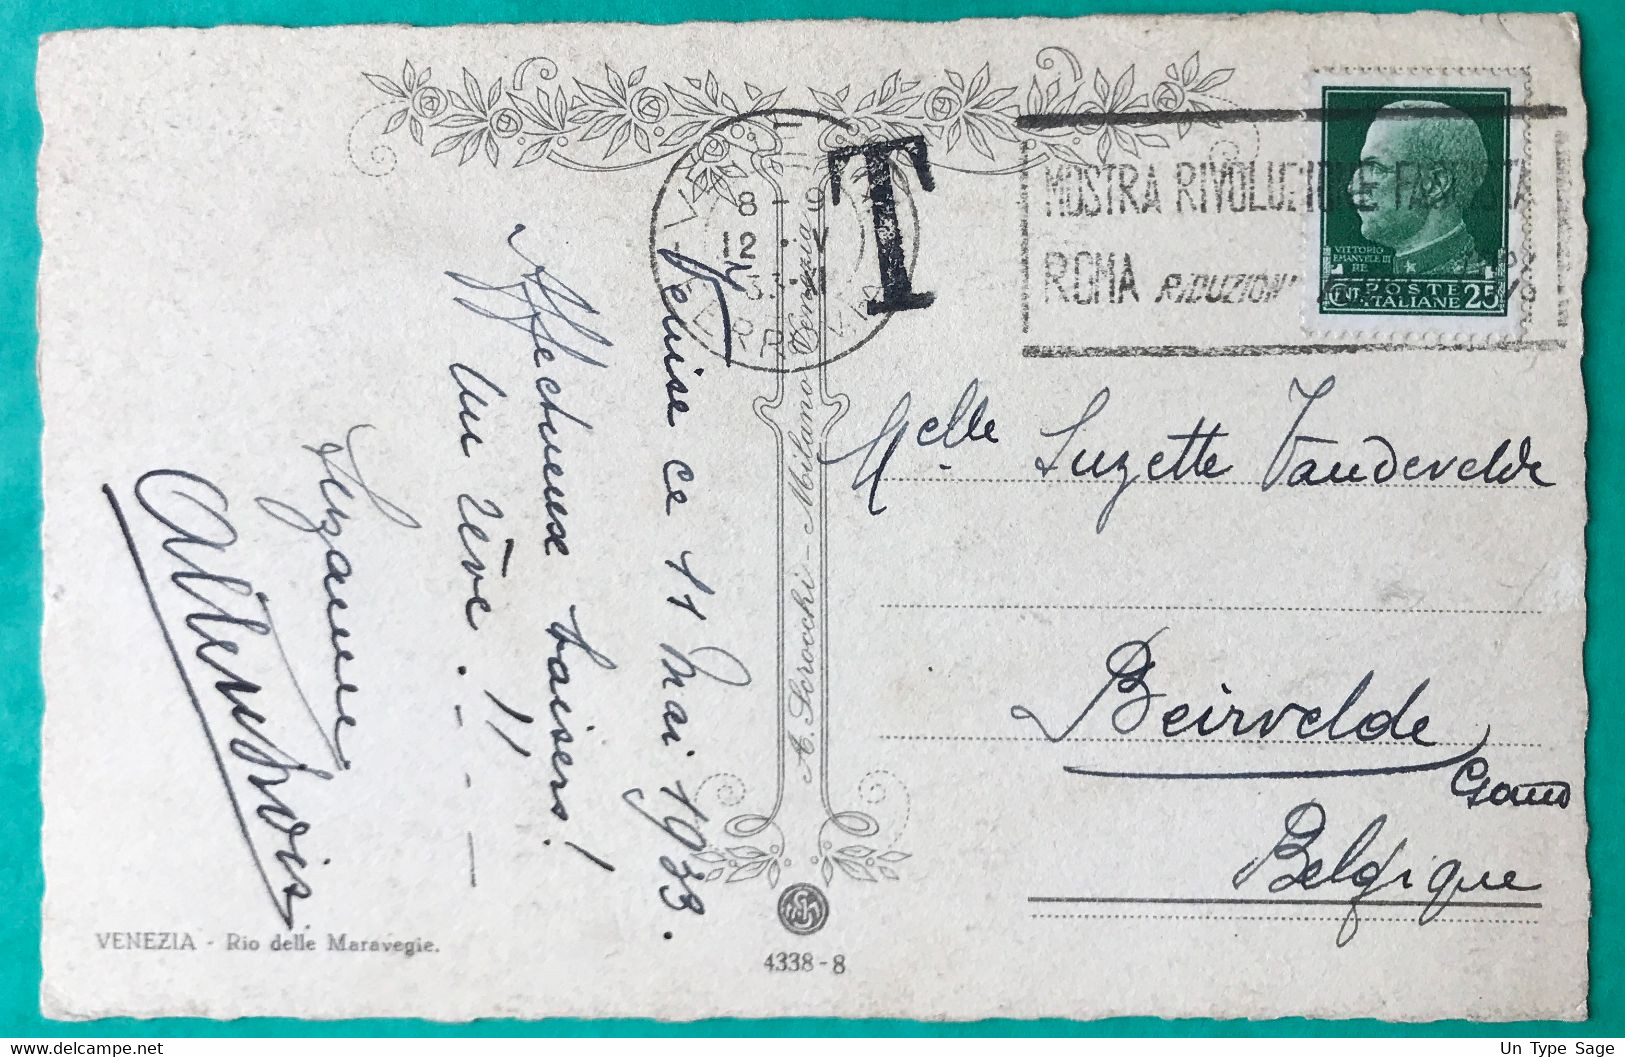 Venise ce 11 Mai 1933.
Affectueux baisers!
Un rêve. !!
Suzanne
VENEZIA - Rio delle Maravegie.
A. Scrocchi - Milano
Venezia
4338-8
8-9
12 · V
33·XI
FERROVIA
T
MOSTRA RIVOLUZIONE FASCISTA
ROMA RIDUZIONI
VITTORIO
EMANUELE III
RE
POSTE
ITALIANE
CENT. 25
Melle Suzette Vandevelde
Beirvelde
Gand
Belgique
Un Type Sage